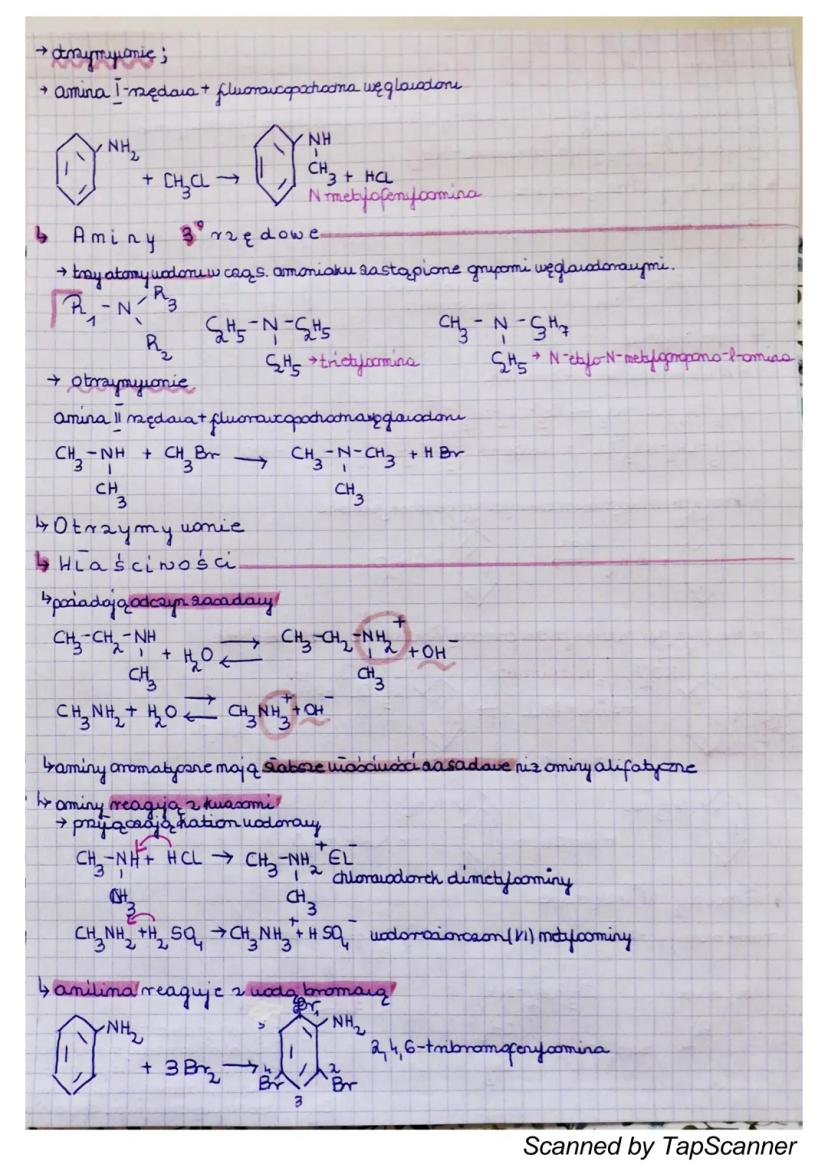 → otrzymywanie;
→ amina I-rzędowa + fluorowcopochodna węglowodoru
NH₂ + CH₃Cl → NH HCl
CH₃ +
N-metylofenyloamina
↳ Aminy 3° rzędowe
→ trzy atomy wodoru w cząs. amoniaku zastąpione grupami węglowodorowymi.
R₁ - N R₃
R₂
C₂H₅ - N - C₂H₅
C₂H₅ → trietyloamina
CH₃ - N - C₃H₇
C₂H₅ → N-etylo-N-metylopropano-1-amina
→ otrzymywanie
amina II rzędowa + fluorowcopochodna węglowodoru
CH₃ - NH + CH₃Br → CH₃ - N - CH₃ + HBr
CH₃ CH₃
↳ Otrzymywanie
↳ Właściwości
↳ posiadają odczyn zasadowy
CH₃-CH₂-NH + H₂O ⇄ CH₃-CH₂-NH₂⁺ + OH⁻
CH₃ CH₃
CH₃NH₂ + H₂O ⇄ CH₃NH₃⁺ + OH⁻
↳ aminy aromatyczne mają słabsze właściwości zasadowe niż aminy alifatyczne
↳ aminy reagują z kwasami
→ przyłączają kation wodorowy
CH₃-NH + HCl → CH₃-NH₂⁺ Cl⁻
CH₃ CH₃ chlorowodorek dimetyloaminy
CH₃NH₂ + H₂SO₄ → CH₃NH₃⁺ + HSO₄⁻ wodorosiarczan(VI) metyloaminy
↳ anilina reaguje z wodą bromową
Br₁
NH₂ + 3Br₂ → 5 NH₂ 2,4,6-tribromofenyloamina
4 2
Br Br
3
Scanned by TapScanner